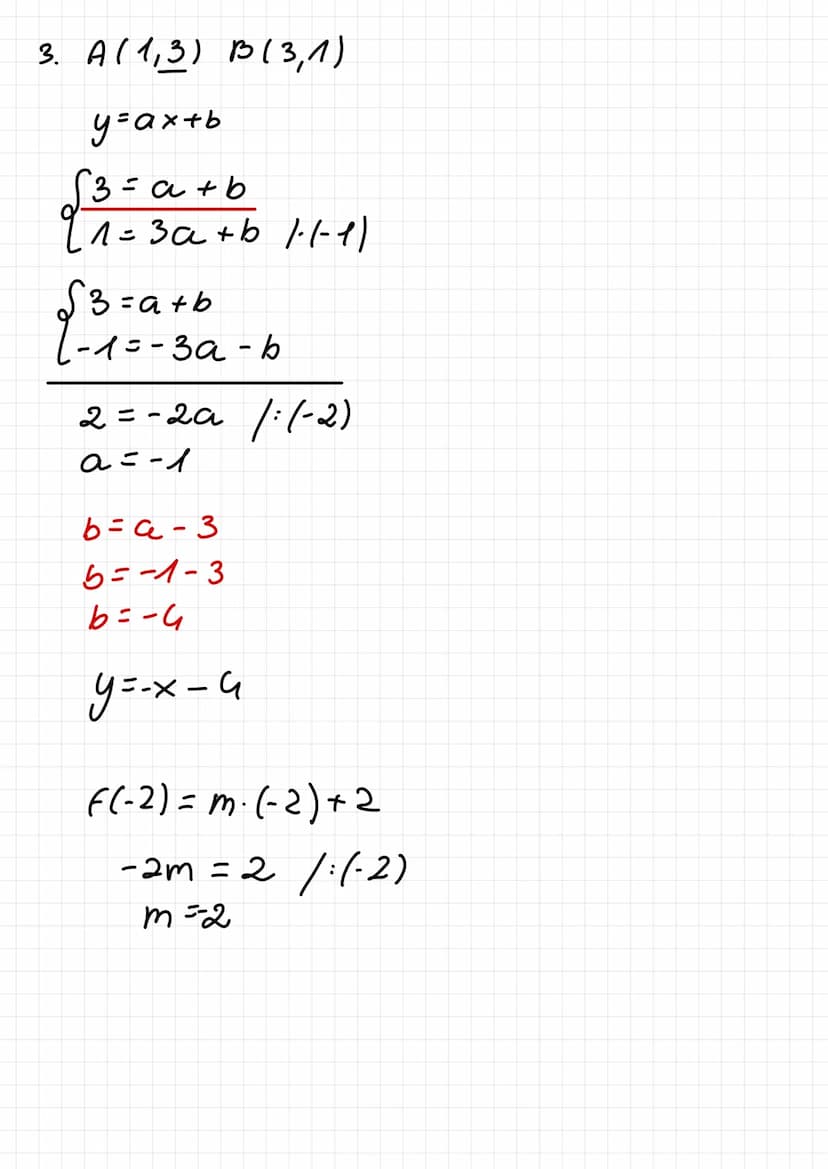 3. A(1,3) B(3,1)
y=ax+b
{3=a+b
1=3a+b /·(-1)
{3=a+b
-1=-3a-b
2=-2a /:(-2)
a=-1
b=a-3
b=-1-3
b=-4
y=-x-4
F(-2)=m·(-2)+2
-2m=2 /:(-2)
m=-2